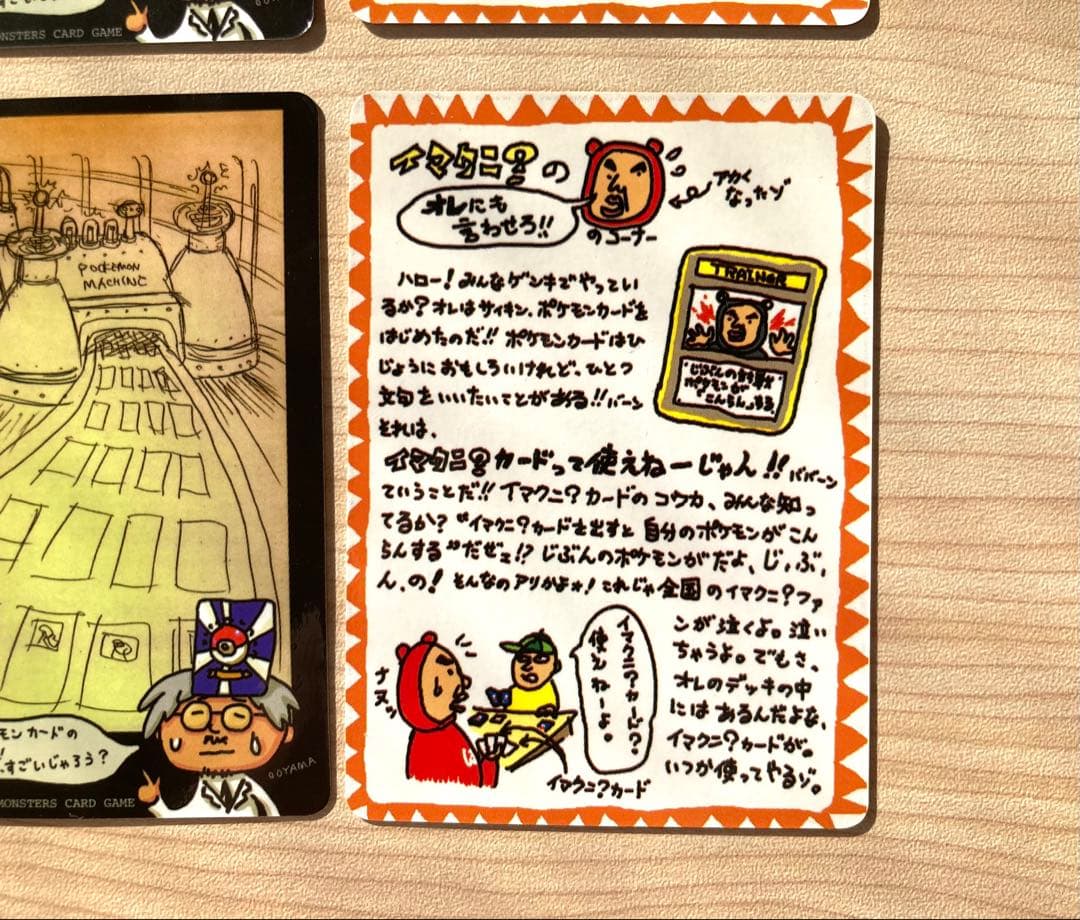 ONSTERS CARD GAME
POCKEMON
MACHINE
モンカードの
すごいじゃろう?
OOYAMA
MONSTERS CARD GAME
イマクニ?の
オレにも
言わせろ!!
のコーナー
アカく
なったゾ
ハロー! みんなゲンキでやってい
るか? オレはサイキン、ポケモンカードを
はじめたのだ!! ポケモンカードはひ
じょうにおもしろいけれど、ひとつ
文句をいいたいことがある!! バーン
それは、
TRAINER
じぶんの
ポケモンが
こんらんする
イマクニ?カードって使えねーじゃん!! ババーン
ていうことだ!! イマクニ?カードのコウカ、みんな知っ
てるか? “イマクニ?カードを出すと 自分のポケモンがこん
らんする”だぜェ!? じぶんのポケモンがだよ、じ、ぶ、
ん、の! そんなのアリかよォ! これじゃ全国のイマクニ?ファ
ンが泣くよ。泣い
ちゃうよ。でもさ、
オレのデッキの中
にはあるんだよな、
イマクニ?カードが。
いつか使ってやるゾ。
ナヌッ
イマクニ?カード?
使えねーよ。
イマクニ?カード